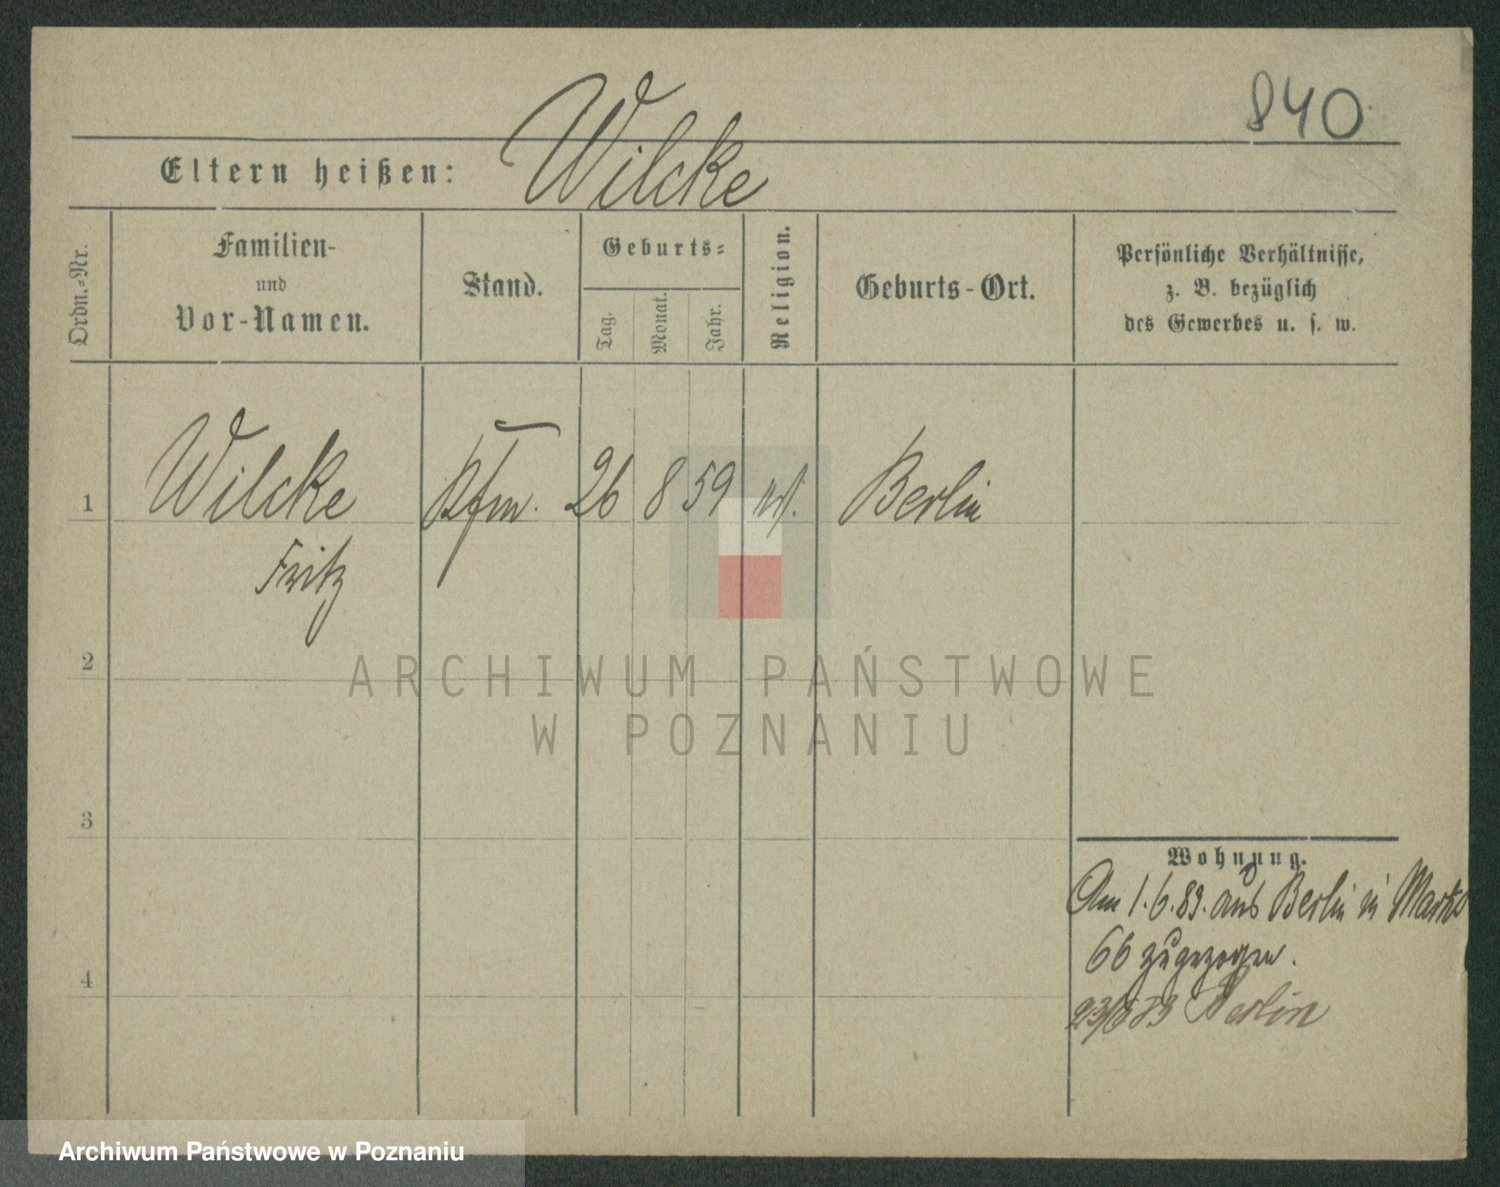 840
Eltern heißen: Wilcke
Ordn.-Nr.
Familien-
und
Vor-Namen.
Stand.
Geburts-
Tag.
Monat.
Jahr.
Religion.
Geburts-Ort.
Persönliche Verhältnisse,
z. B. bezüglich
des Gewerbes u. s. w.
1 Wilcke Kfm. 26 8 59 Berlin
Fritz
2
ARCHIWUM PAŃSTWOWE
W POZNANIU
3
Wohnung.
Am 1.6.83. aus Berlin in Markt
66 zugezogen.
4
23/6 83 Berlin
Archiwum Państwowe w Poznaniu